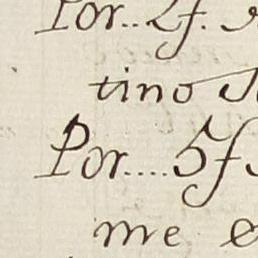 Por.. 2f.
tino
Por.... 5f
me